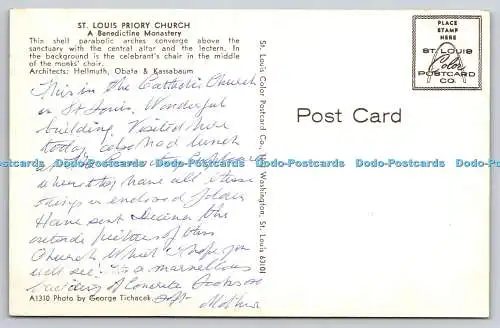 ST. LOUIS PRIORY CHURCH
A Benedictine Monastery
Thin shell parabolic arches converge above the
sanctuary with the central altar and the lectern. In
the background is the celebrant's chair in the middle
of the monks' chair.
Architects: Hellmuth, Obata & Kassabaum
This is the Catholic Church
in St Louis. Wonderful
building. Visited here
today, also had lunch
at the
where they have all
things in enclosed
Have sent the
outside picture of this
Church which I hope you
will see. Its a marvellous
building of Concrete
Mother
A1310 Photo by George Tichacek
St. Louis Color Postcard Co., Washington, St. Louis 63101
PLACE
STAMP
HERE
ST. LOUIS
Color
POSTCARD
CO.
Post Card
Dodo-Postcards Dodo-Postcards Dodo-Postcards Dodo-Postcards Dodo-Postcards Dodo-Postcards